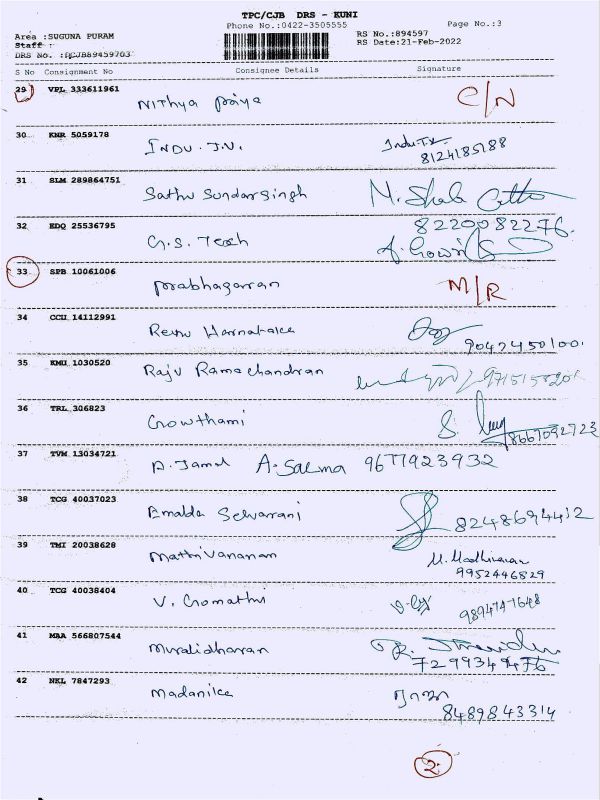 TPC/CJB DRS - KUNI
Phone No.:0422-3505555 Page No.:3
Area :SUGUNA PURAM RS No.:894597
Staff : RS Date:21-Feb-2022
DRS No. :RCJB89459703
S No Consignment No Consignee Details Signature
29 VPL 333611961 Nithya priya C/N
30 KNR 5059178 INDU.J.N.
8124185188
31 SLM 289864751 Sathu Sundarsingh
32 EDQ 25536795 G.S. Tech 8220082276.
33 SPB 10061006 Prabhagaran M/R
34 CCU 14112991 Renu Harnatake 9042450100.
35 KMU 1030520 Raju Ramachandran
36 TRL 306823 Gowthami 8667092723
37 TVM 13034721 A. Jamal A. Salma 9677923932
38 TCG 40037023 Emalda Selvarani 8248694412
39 TMI 20038628 Mathivananam M. Madhivanan
9952446829
40 TCG 40038404 V. Gomathi
41 MAA 566807544 Muralidharan
7299349476
42 NKL 7847293 Madanika ராஜா
8489843314
2